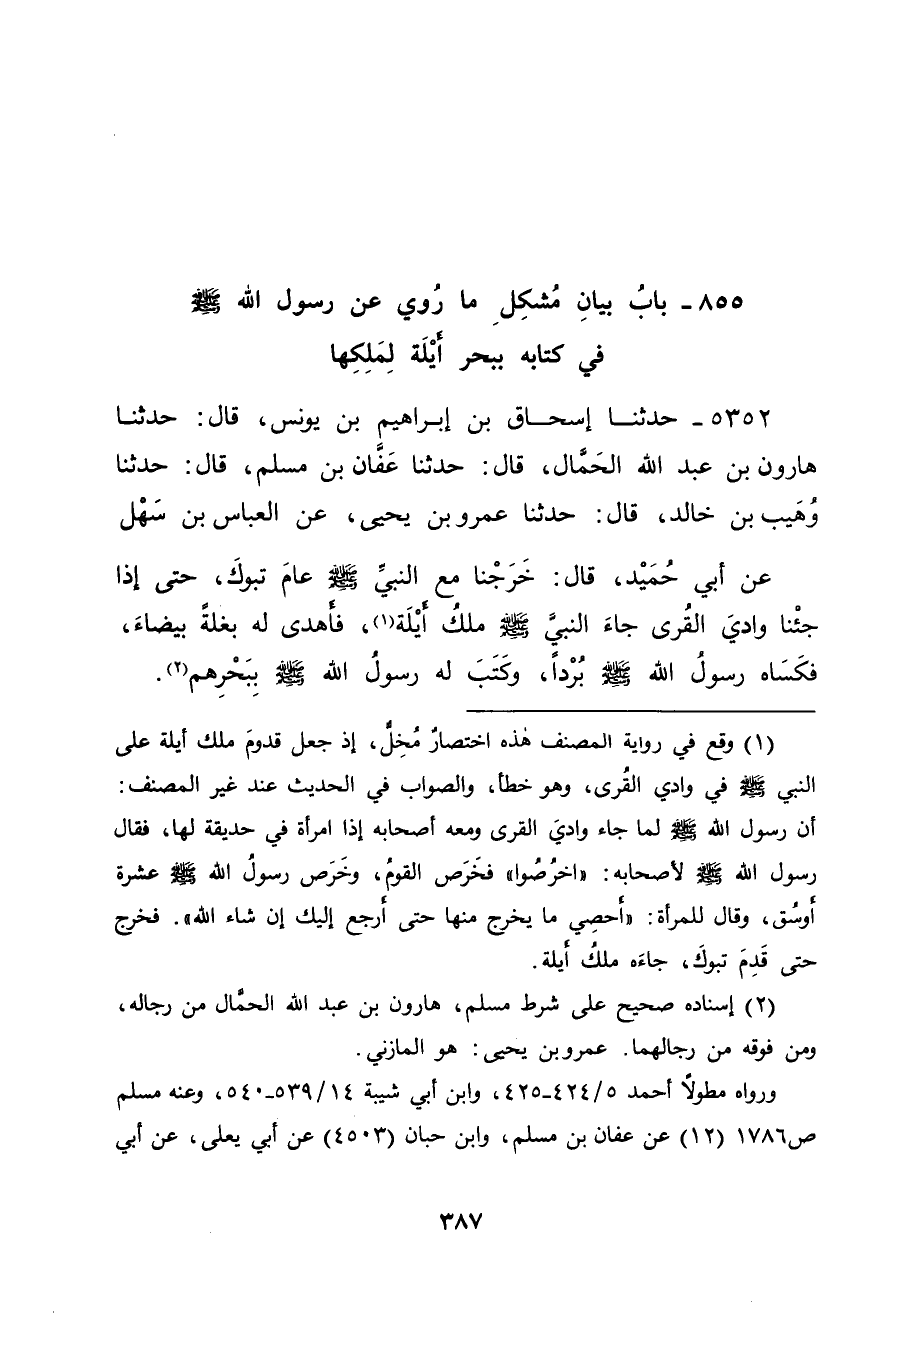 ٨٥٥ - بابُ بيانِ مُشكِلِ ما رُوي عن رسول الله ﷺ
في كتابه ببحر أَيْلَة لِمَلِكِها
٥٣٥٢ - حدثنـا إسحـاق بن إبـراهيم بن يونس، قال: حدثنـا
هارون بن عبد الله الحَمَّال، قال: حدثنا عَفَّان بن مسلم، قال: حدثنا
وُهَيب بن خالد، قال: حدثنا عمرو بن يحيى، عن العباس بن سَهْل
عن أبي حُمَيْد، قال: خَرَجْنا مع النبيِّ ﷺ عامَ تبوكَ، حتى إذا
جئْنا واديَ القُرى جاءَ النبيَّ ﷺ ملكُ أَيْلَة(١)، فأَهدى له بغلةً بيضاءَ،
فكَسَاه رسولُ الله ﷺ بُرْداً، وكَتَبَ له رسولُ الله ﷺ بِبَحْرِهم(٢).
(١) وقع في رواية المصنف هٰذه اختصارٌ مُخِلٌّ، إذ جعل قدومَ ملك أيلة على
النبي ﷺ في وادي القُرى، وهو خطأ، والصواب في الحديث عند غير المصنف:
أن رسول الله ﷺ لما جاء واديَ القرى ومعه أصحابه إذا امرأة في حديقة لها، فقال
رسول الله ﷺ لأصحابه: «اخرُصُوا» فخَرَص القومُ، وخَرَص رسولُ الله ﷺ عشرة
أوسُق، وقال للمرأة: «أَحصِي ما يخرج منها حتى أَرجع إليك إن شاء الله». فخرج
حتى قَدِمَ تبوكَ، جاءَه ملكُ أَيلة.
(٢) إسناده صحيح على شرط مسلم، هارون بن عبد الله الحمَّال من رجاله،
ومن فوقه من رجالهما. عمرو بن يحيى: هو المازني.
ورواه مطولًا أحمد ٤٢٤/٥-٤٢٥، وابن أبي شيبة ٥٣٩/١٤-٥٤٠، وعنه مسلم
ص١٧٨٦ (١٢) عن عفان بن مسلم، وابن حبان (٤٥٠٣) عن أبي يعلى، عن أبي
٣٨٧